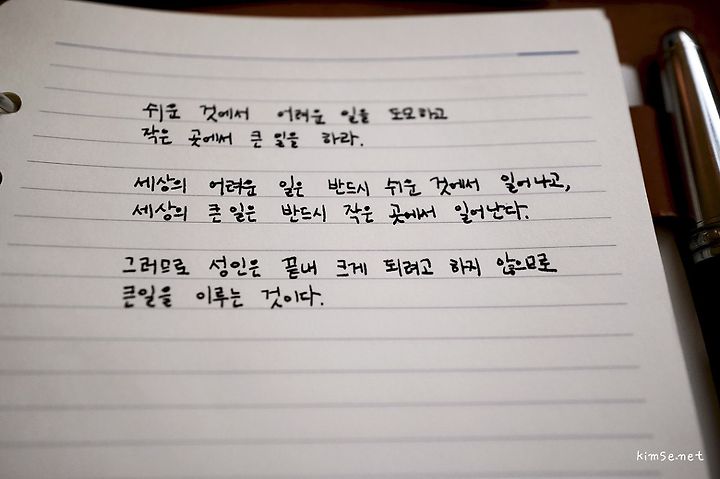 쉬운 것에서 어려운 일을 도모하고
작은 곳에서 큰 일을 하라.
세상의 어려운 일은 반드시 쉬운 것에서 일어나고,
세상의 큰 일은 반드시 작은 곳에서 일어난다.
그러므로 성인은 끝내 크게 되려고 하지 않으므로
큰일을 이루는 것이다.
kim5e.net